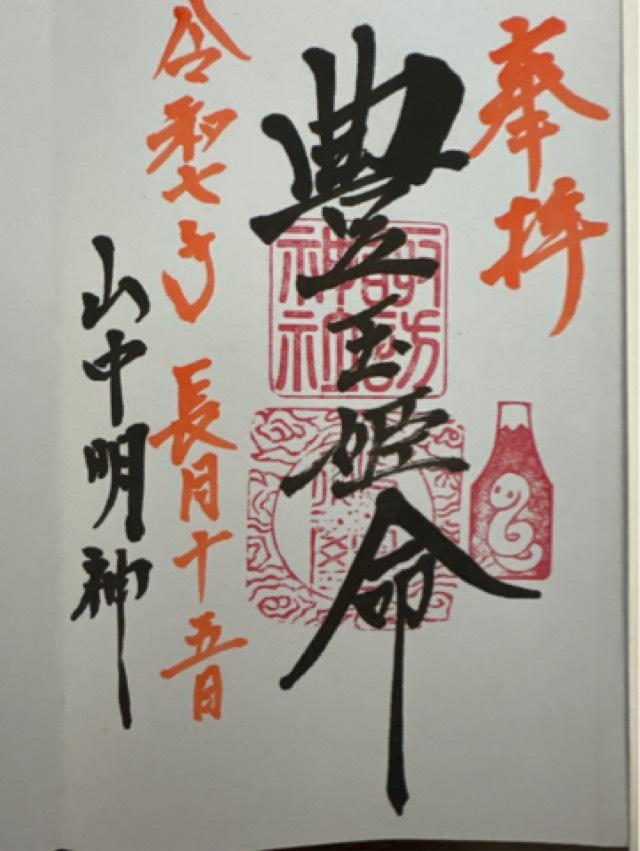 奉拝
豊玉姫命
諏訪
神社
令和七年 長月十五日
山中明神